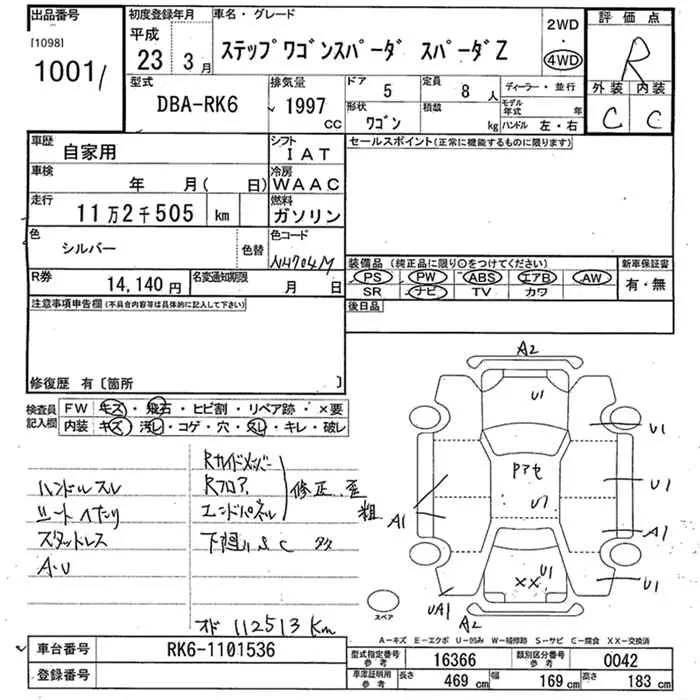 出品番号
[1098]
1001/
初度登録年月
平成
23 3月
車名・グレード
ステップワゴンスパーダ スパーダZ
2WD
・
4WD
評価点
R
外装 内装
C C
型式
DBA-RK6
排気量
1997
CC
ドア
5
定員
8人
ディーラー・並行
形状
ワゴン
積載
kg
モデル年式 年
ハンドル 左・右
車歴
自家用
シフト
IAT
車検
年 月( 日)
冷房
WAAC
走行
11万2千505 km
燃料
ガソリン
色
シルバー
色替
色コード
NH704M
R券
14,140円
名変通知期限
月 日
セールスポイント(正常に機能するものに限ります)
装備品(純正品に限り○をつけてください)
PS PW ABS エアB AW
SR ナビ TV カワ
新車保証書
有・無
後日品
注意事項申告欄(不具合内容等は具体的に記入して下さい)
修復歴 有〔箇所 〕
検査員
記入欄
FW キズ・飛石・ヒビ割・リペア跡・×要
内装 キズ・汚レ・コゲ・穴・スレ・キレ・破レ
ハンドルスレ
シートヘタリ
スタッドレス
A・U
Rサイドメンバー
Rフロア
エンドパネル
修正、歪
粗
下廻りSC
オド 112513Km
A2
U1
U1
Pアセ
U1
U1
A1
A1
U1
XX
U1
UA1
A2
スペア
A-キズ E-エクボ U-凹み W-補修跡 S-サビ C-腐食 XX-交換済
車台番号
RK6-1101536
登録番号
型式指定番号
参考
16366
類別区分番号
参考
0042
車庫証明用
参考
長さ
469 cm
幅
169 cm
高さ
183 cm